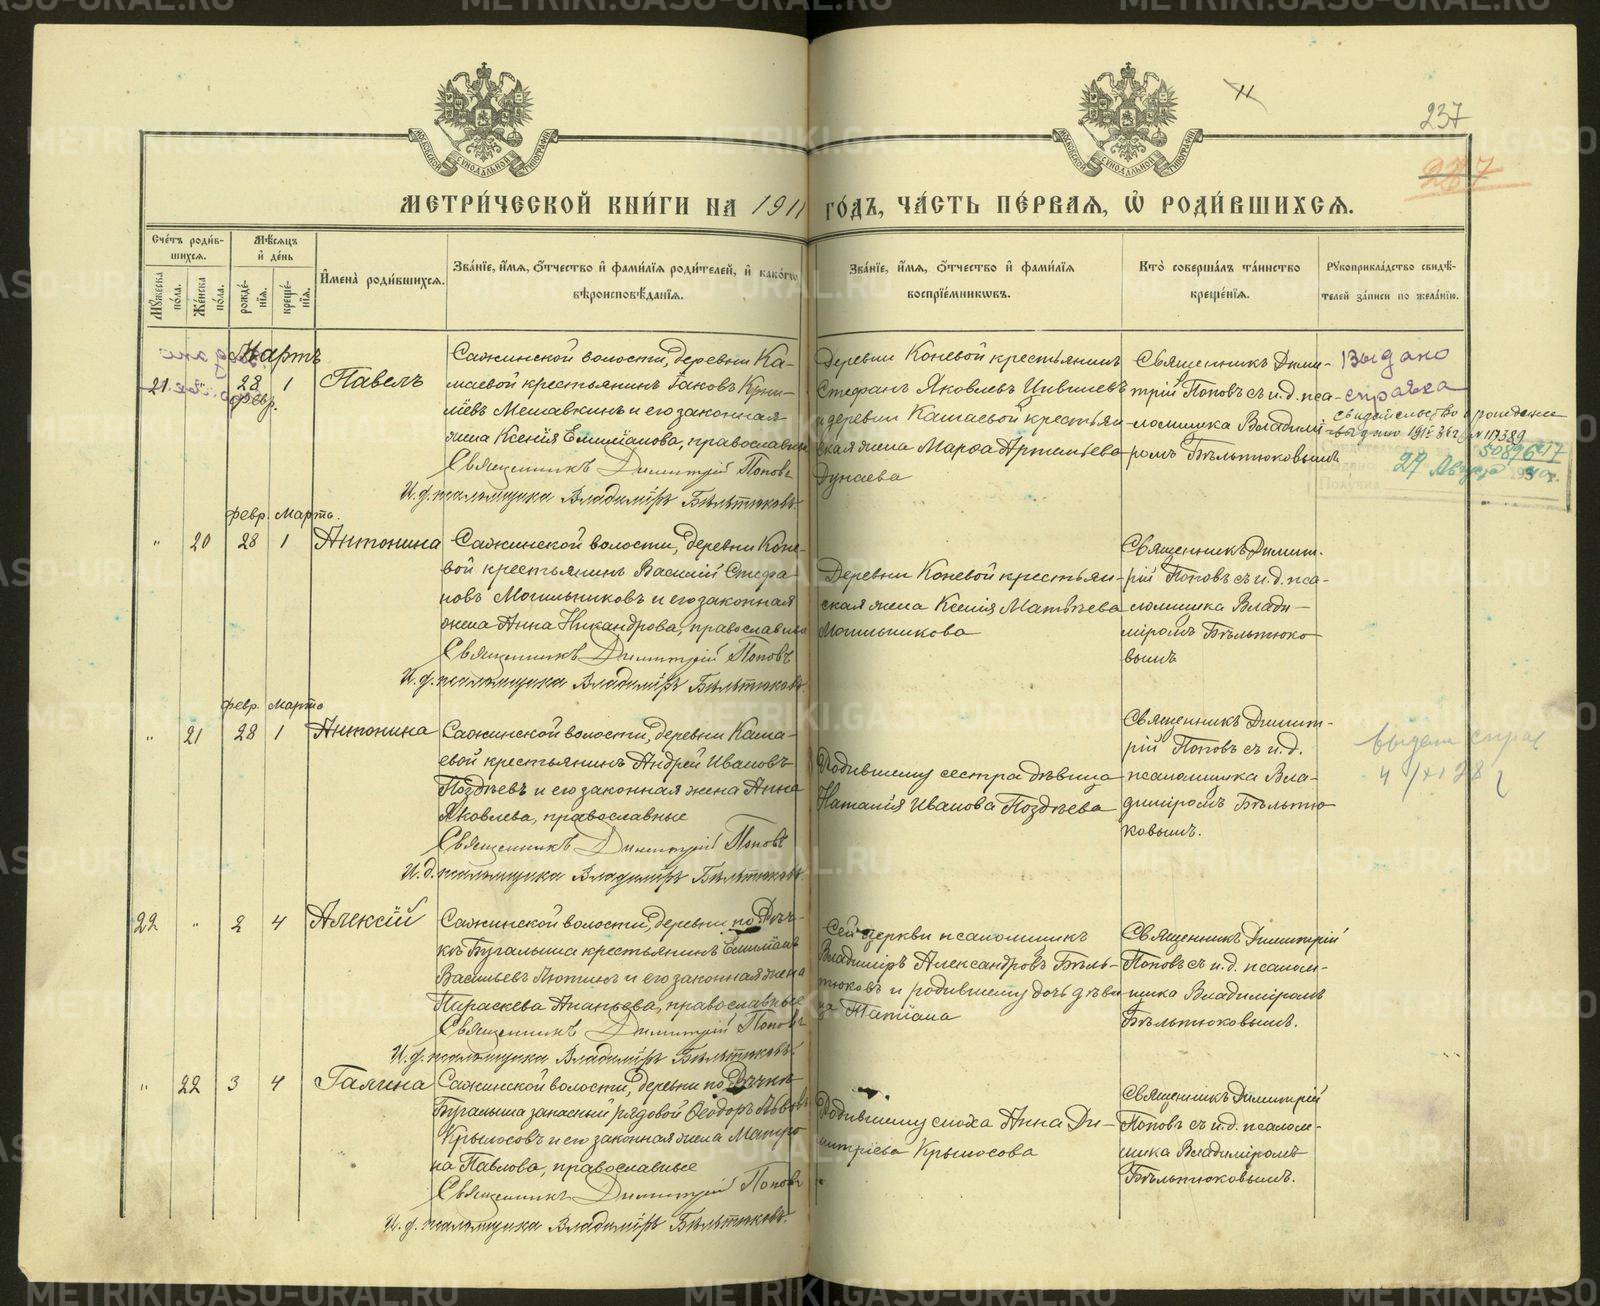 11
237
287
МЕТРИ́ЧЕСКОЙ КНИ́ГИ НА 1911 ГО́ДЪ, ЧА́СТЬ ПЕ́РВАЯ, Ѡ҆ РОДИ́ВШИХСЯ.
Сче́тъ роди́в-
шихся.
Мꙋ́жеска по́ла.
Же́нска по́ла.
Мѣ́сяцъ и҆ де́нь
рожде́-
нїѧ.
креще́-
нїѧ.
И҆мена̀ роди́вшихсѧ.
Зва́нїе, и҆́мѧ, ѻ҆́тчество и҆ фами́лїѧ роди́телей, и҆ како́гѡ
вѣроисповѣ́данїѧ.
Зва́нїе, и҆́мѧ, ѻ҆́тчество и҆ фами́лїѧ
воспрїе́мникѡвъ.
Кто̀ соверша́лъ та́инство
креще́нїѧ.
Рꙋкоприкла́дство свидѣ́-
телей за́писи по жела́нїю.
Мартъ
21 " 28 февр. 1 Павелъ
Сажинской волости, деревни Ка-
маевой крестьянинъ Iаковъ Кири-
ловъ Мешавкинъ и его законная
жена Ксенiя Емилiанова, православные
Священникъ Димитрiй Поповъ
И. д. псаломщика Владимiръ Бѣльтюковъ.
Деревни Коневой крестьянинъ
Стефанъ Яковлевъ
и деревни Камаевой крестьян-
ская жена Марфа Артемьева
Дунаева
Священникъ Дими-
трiй Поповъ съ и. д. пса-
ломщика Владимi-
ромъ Бѣльтюковымъ
Выдано
справка
свидетельство о рождении
выдано
27 Август
февр. Мартъ.
" 20 28 1 Антонина
Сажинской волости, деревни Коне-
вой крестьянинъ Василiй Стефа-
новъ Могильниковъ и его законная
жена Анна Никандрова, православные
Священникъ Димитрiй Поповъ
И. д. псаломщика Владимiръ Бѣльтюковъ.
Деревни Коневой крестьян-
ская жена Ксенiя Матвѣева
Могильникова
Священникъ Димит-
рiй Поповъ съ и. д. пса-
ломщика Влади-
мiромъ Бѣльтюко-
вымъ
февр. Мартъ
" 21 28 1 Антонина
Сажинской волости, деревни Кама-
евой крестьянинъ Андрей Ивановъ
Поздѣевъ и его законная жена Анна
Яковлева, православные
Священникъ Димитрiй Поповъ
И. д. псаломщика Владимiръ Бѣльтюковъ.
Родившему сестра дѣвица
Наталiя Иванова Поздѣева
Священникъ Димит-
рiй Поповъ съ и. д.
псаломщика Вла-
димiромъ Бѣльтю-
ковымъ.
выдан справ
22 " 2 4 Алексiй
Сажинской волости, деревни по Рѣч-
кѣ Бугалыша крестьянинъ Емилiанъ
Васильевъ Лютинъ и его законная жена
Параскева Ананьева, православные
Священникъ Димитрiй Поповъ
И. д. псаломщика Владимiръ Бѣльтюковъ.
Сей церкви псаломщикъ
Владимiръ Александровъ Бѣль-
тюковъ и родившему дочь дѣви-
ца Татiана
Священникъ Димитрiй
Поповъ съ и. д. псалом-
щика Владимiромъ
Бѣльтюковымъ.
" 22 3 4 Галина
Сажинской волости, деревни по Рѣчкѣ
Бугалыша запасный рядовой Ѳеодоръ Львовъ
Крылосовъ и его законная жена Матро-
на Павлова, православные
Священникъ Димитрiй Поповъ
И. д. псаломщика Владимiръ Бѣльтюковъ.
Родившему сноха Анна Ди-
митрiева Крылосова
Священникъ Димитрiй
Поповъ съ и. д. псалом-
щика Владимiромъ
Бѣльтюковымъ.
METRIKI.GASO-URAL.RU